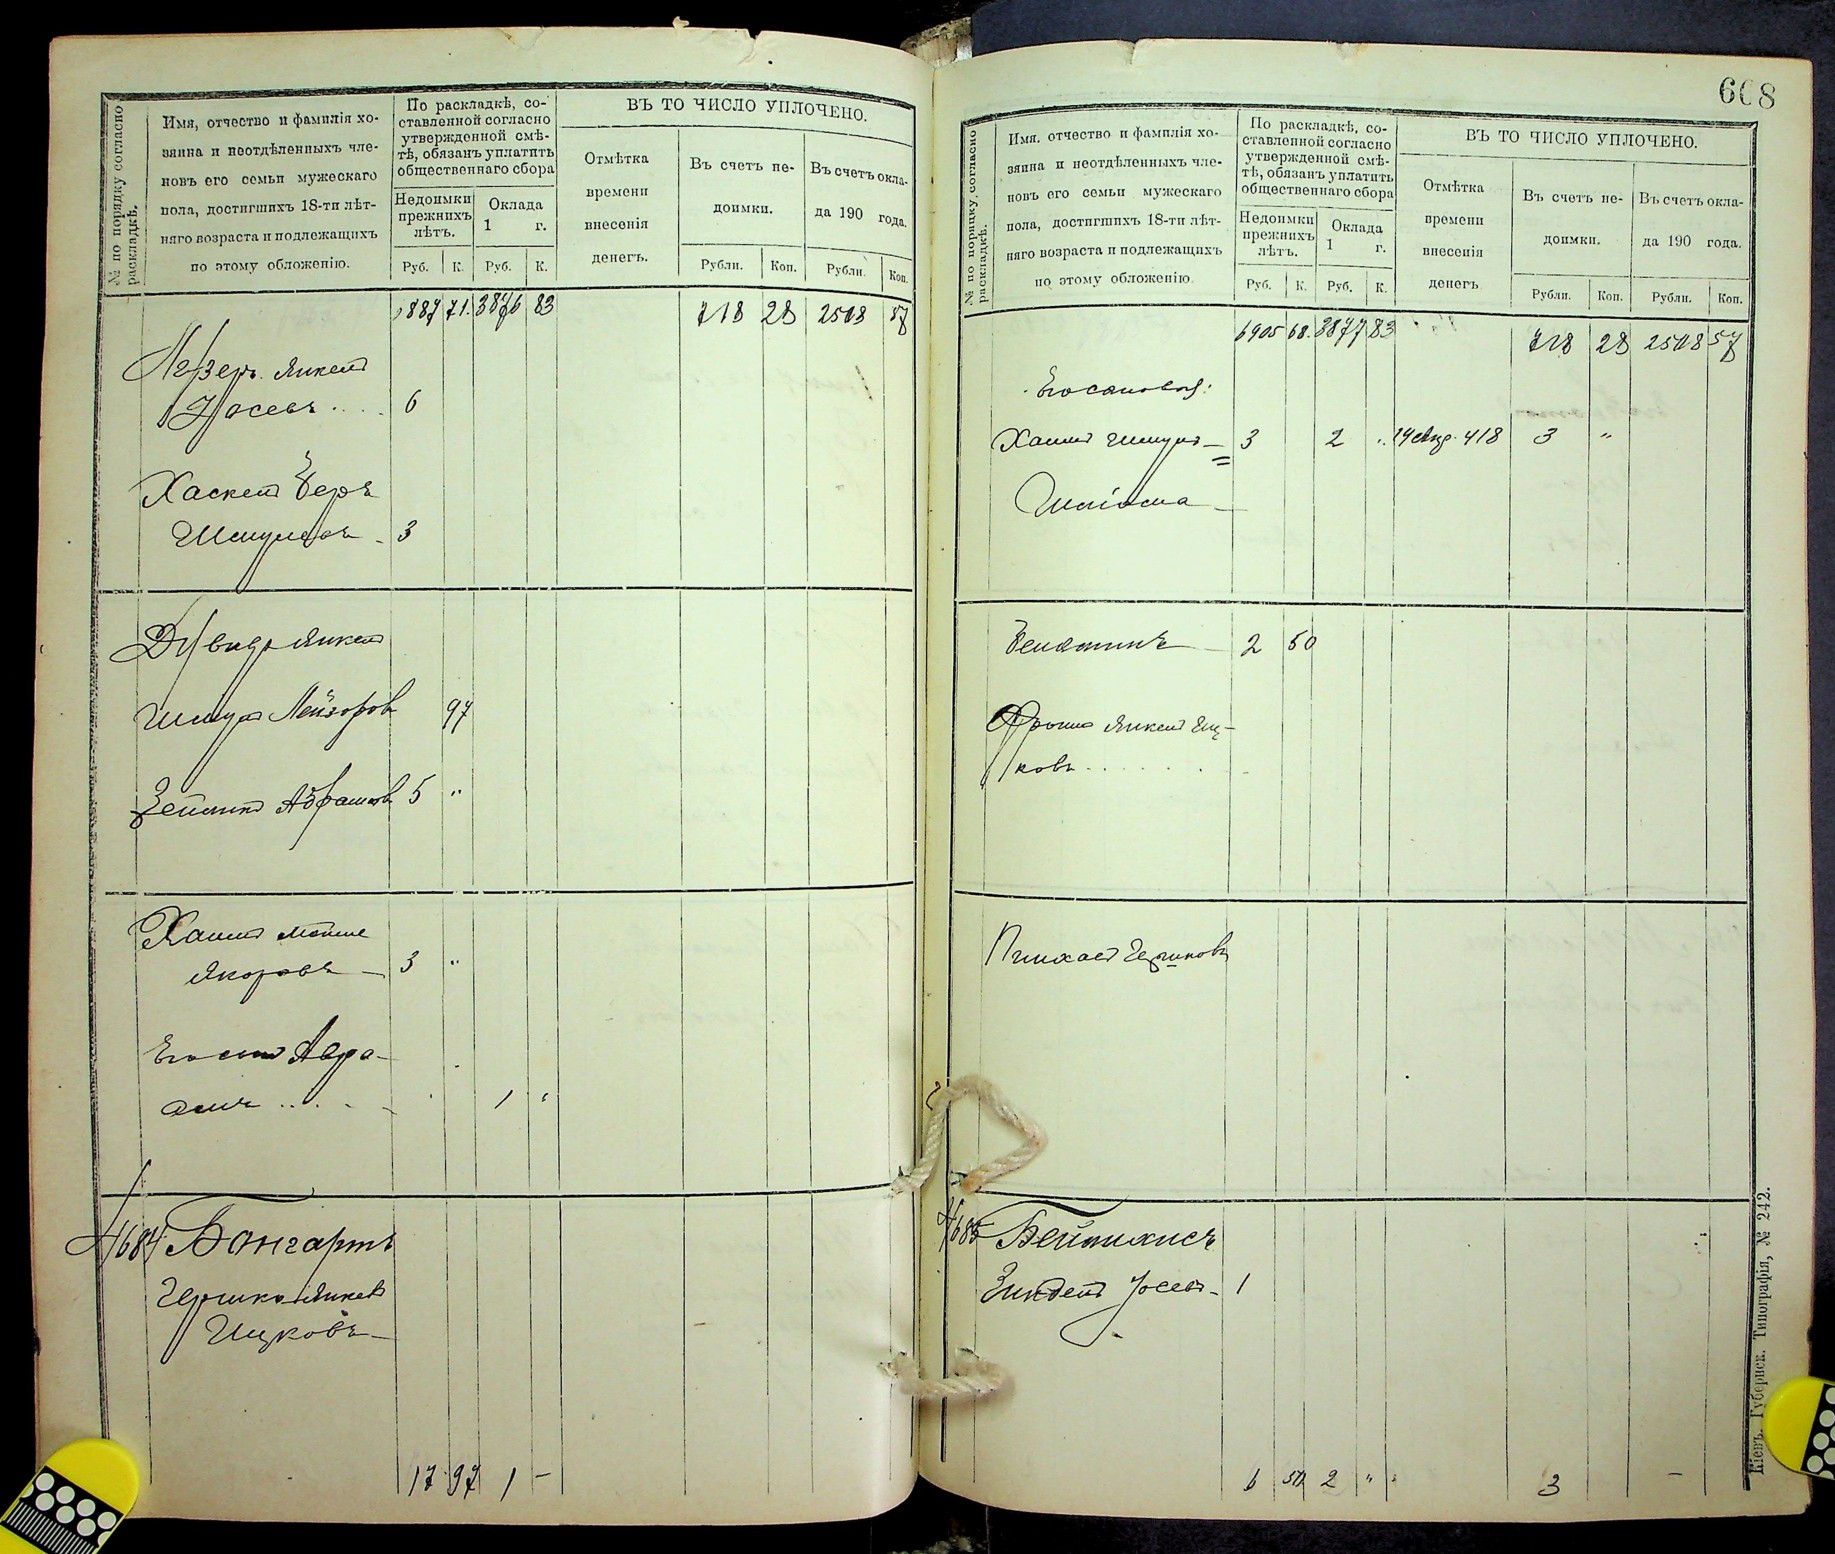 № по порядку согласно раскладкѣ.
Имя, отчество и фамилія хо-
зяина и неотдѣленныхъ чле-
новъ его семьи мужескаго
пола, достигшихъ 18-ти лѣт-
няго возраста и подлежащихъ
по этому обложенію.
По раскладкѣ, со-
ставленной согласно
утвержденной смѣ-
тѣ, обязанъ уплатить
общественнаго сбора
Недоимки
прежнихъ
лѣтъ.
Оклада
1 г.
ВЪ ТО ЧИСЛО УПЛОЧЕНО.
Отмѣтка
времени
внесенія
денегъ.
Въ счетъ не-
доимки.
Въ счетъ окла-
да 190 года.
Руб. К. Руб. К. Рубли. Коп. Рубли. Коп.
887 71. 3876 83 718 28 2508 57
Лейзеръ Янкель
Іосевъ 6
Хаскель Беръ
Шмулевъ 3
Давидъ Янкель
Шмуль Лейзоровъ 97
Зейликъ Абрамовъ 5 "
Хаимъ Мойше
Якововъ 3 "
Авра-
1 "
4684 Бонгартъ
Гершко Янкель
Ицковъ
17 97 1 -
608
№ по порядку, согласно раскладкѣ.
Имя, отчество и фамилія хо-
зяина и неотдѣленныхъ чле-
новъ его семьи мужескаго
пола, достигшихъ 18-ти лѣт-
няго возраста и подлежащихъ
по этому обложенію.
По раскладкѣ, со-
ставленной согласно
утвержденной смѣ-
тѣ, обязанъ уплатить
общественнаго сбора
Недоимки
прежнихъ
лѣтъ.
Оклада
1 г.
ВЪ ТО ЧИСЛО УПЛОЧЕНО.
Отмѣтка
времени
внесенія
денегъ
Въ счетъ не-
доимки.
Въ счетъ окла-
да 190 года.
Руб. К. Руб. К. Рубли. Коп. Рубли. Коп.
6905 68. 3877 83 718 28 2508 57
Его сыновья:
Хаимъ Шмуль 3 2 " 418 3 "
Шлiома
Веніаминъ 2 50
Фроимъ Янкель Иц-
ковъ
Пинхасъ Гершковъ
4685
Зиндель Іосевъ 1
6 50 2 " 3 -
Кіевъ. Губернск. Типографія, № 242.